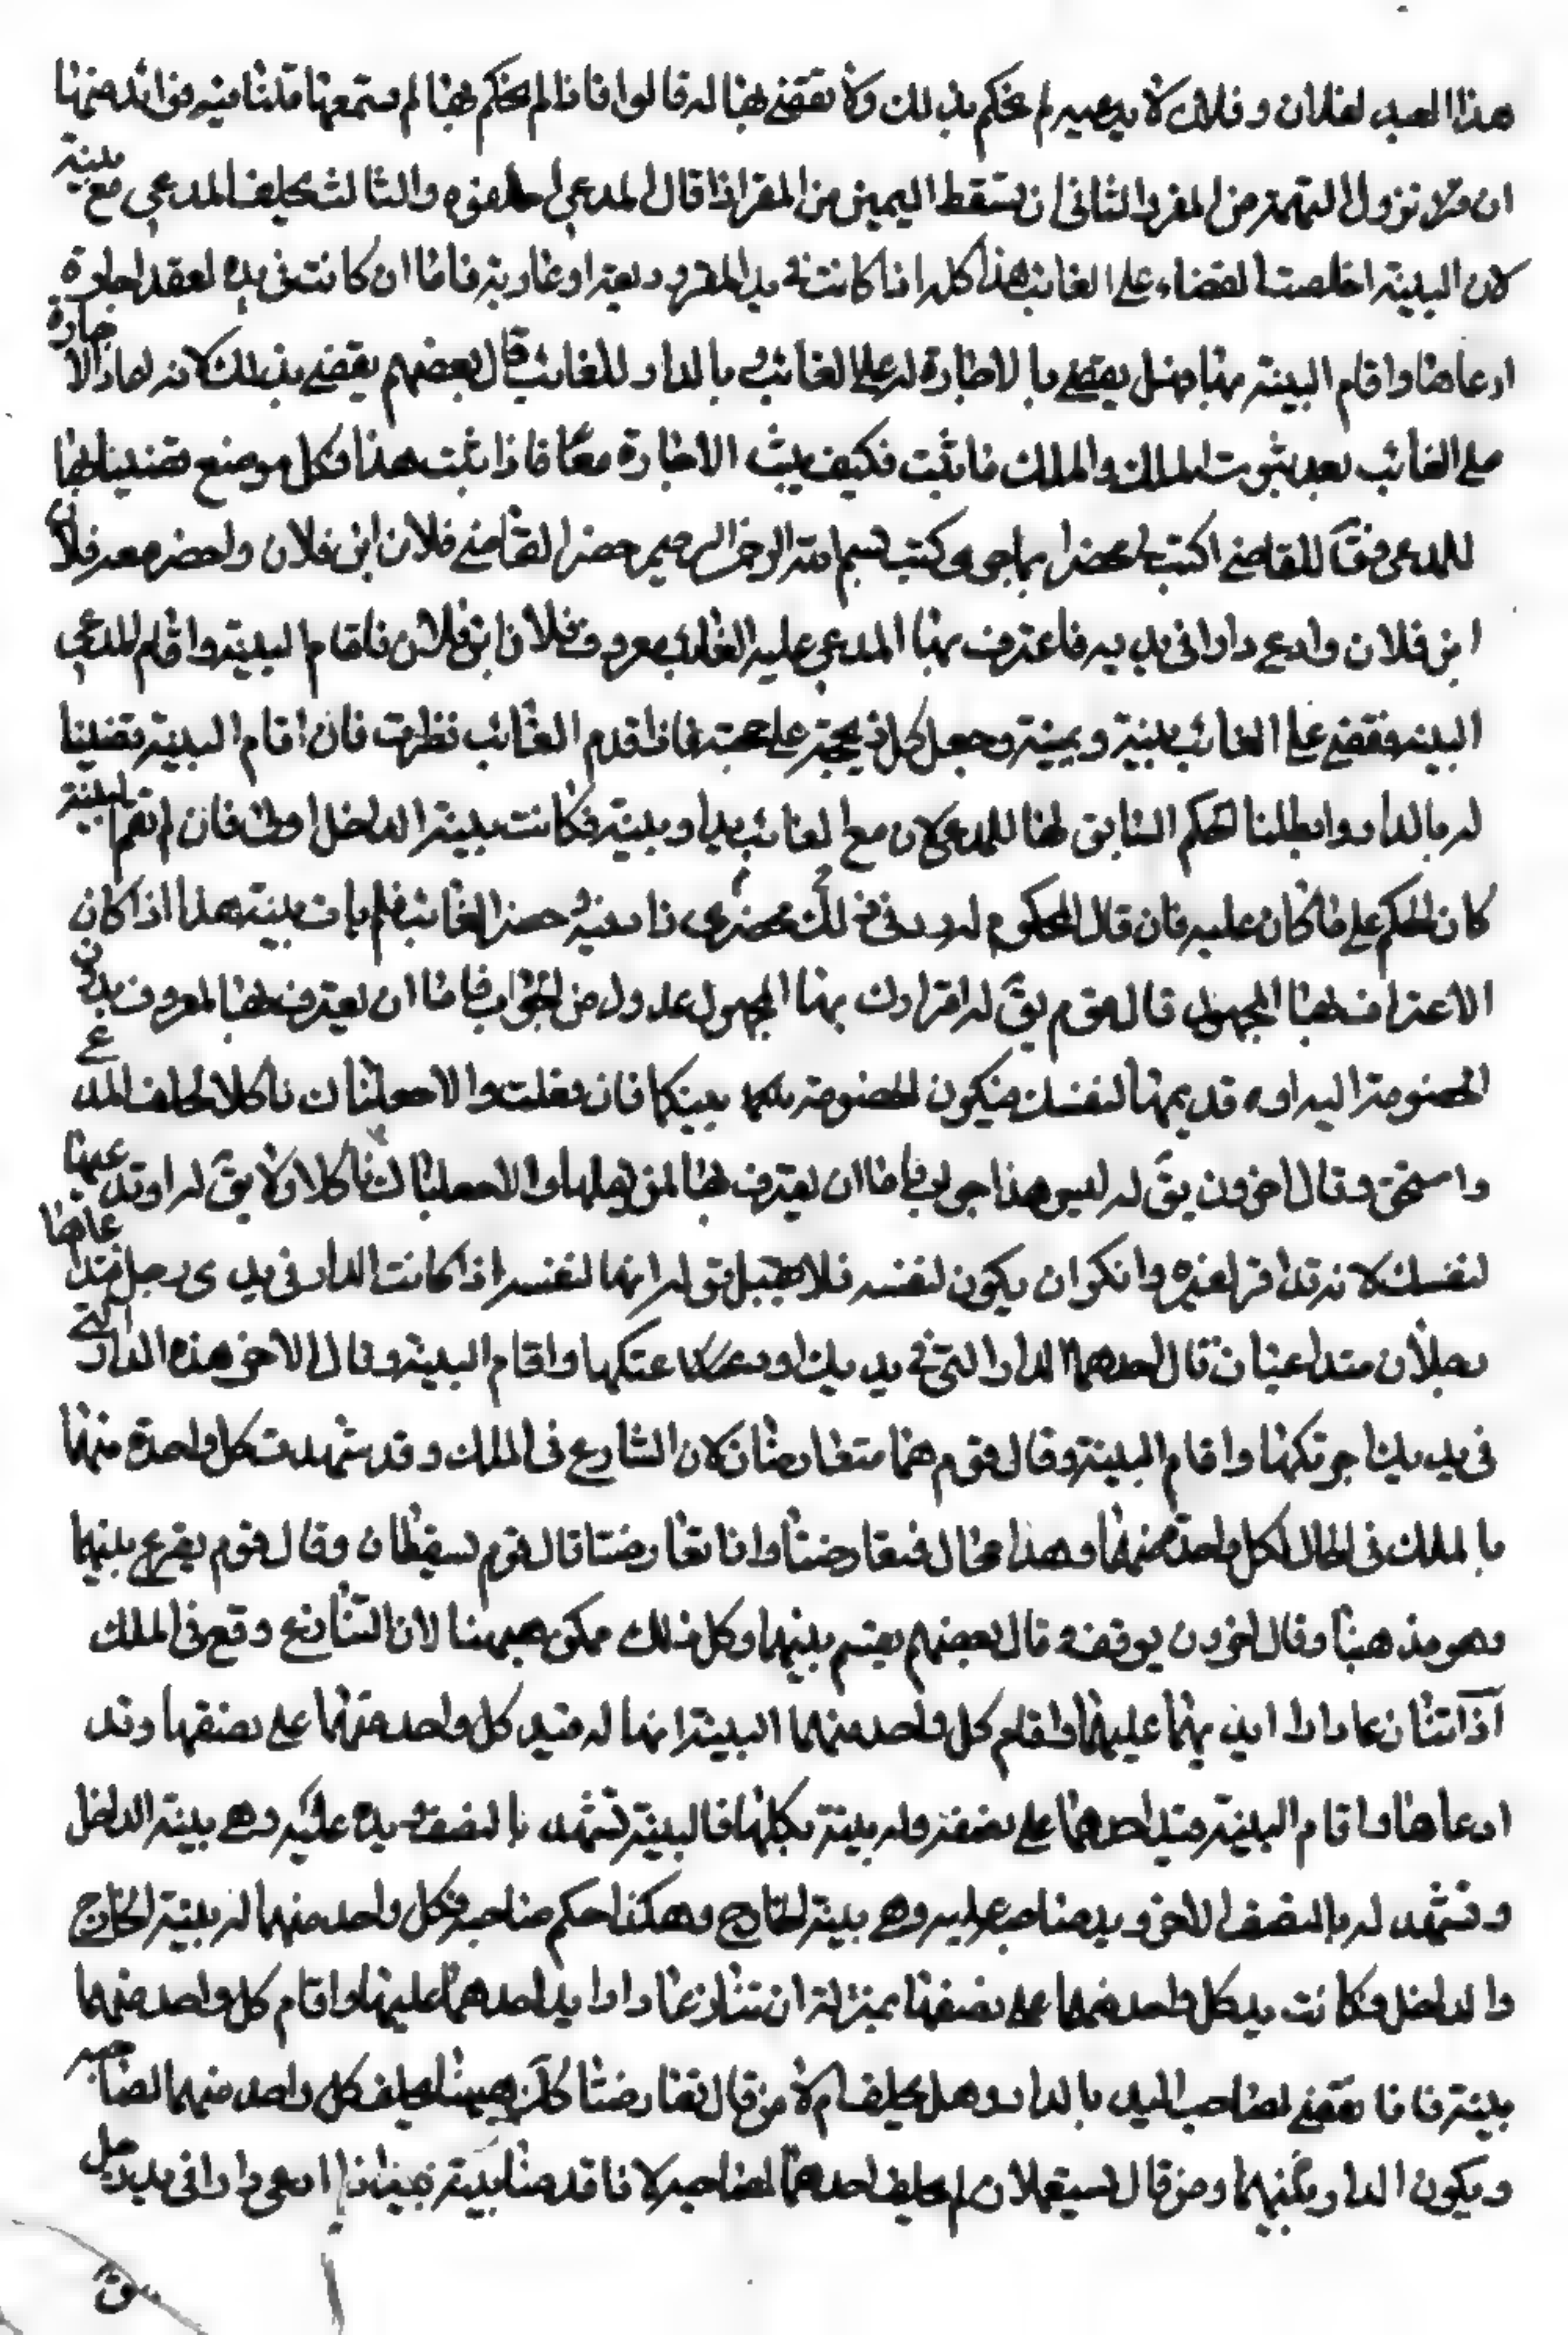 هذا العبد لفلان وفلان لا يدعيه لم يحكم بذلك ولا نقضي بها له قالوا فاذا لم يحكم بها لم سمعتها قلنا فيه فوائد منها
ان تزول التهمة من المقر الثاني ان تسقط اليمين من المقر اذا قال المدعي احلفوه والثالث تحليف المدعي مع بينته
لان البينة اخلصت القضاء على الغائب هذا كله اذا كانت في يد المقر وديعة او عارية فاما ان كانت في يده لعقد اجارة
ادعاها واقام البينة بها فهل يقضى بالاجارة له على الغائب بالدار للغائب قال بعضهم يقضى بذلك لانه ادعا الاجارة
على الغائب بعد ثبوت الملك والملك ما ثبت فكيف يثبت الاجارة معا فاذا ثبت هذا فكل موضع قضينا بها
للمدعي فقال للقاضي اكتب لي محضرا بما جرى كتب بسم الله الرحمن الرحيم حضر القاضي فلان ابن فلان واحضر معه فلان
ابن فلان وادعى دارا في يديه فاعترف بها المدعى عليه الغائب معروف فلان ابن فلان فاقام البينة واقام المدعي
البينة فقضي على الغائب ببينة ويمينه وجعل كل ذي حجة على حجته فاذا قدم الغائب نظرت فان اقام البينة قضينا
له بالدار وابطلنا الحكم السابق بها للمدعي لان مع الغائب يدا وبينة فكانت بينة الداخل اولى فان لم يقم البينة
كان الحكم على ما كان عليه فان قال المحكوم له زد في ذلك محضري زاد فيه حضر الغائب فلم يات ببينة هذا اذا كان
الاعتراف بها المجهول قال قوم يق له اقرارك بها المجهول عدول من الجواب فاما ان يعترف بها المعروف يكون
الخصومة اليه او تدعيها لنفسك فيكون الخصومة بينكما فان فعلت والا جعلناك ناكلا يحلف المدعي
واستحق وقال اخرون يق له ليس هذا جواب فاما ان يعترف بها لمن يملكها والا جعلناك ناكلا ولا يق له او تدعيها
لنفسك لانه قد اقر لغيره وانكر ان يكون لنفسه فلا يقبل قوله انها لنفسه اذا كانت الدار في يدي رجل فتداعاها
رجلان متداعيان قال احدهما الدار التي في يديك اودعتكها واقام البينة وقال الاخر هذه الدار التي
في يديك اجرتكها واقام البينة وقال قوم هما متعارضان لان التنازع في الملك وقد شهدت كل واحدة منهما
بالملك في الحال لكل واحد منهما وهذا محال فتعارضتا واذا تعارضتا قال قوم تسقطان وقال قوم يقرع بينهما
وهو مذهبنا وقال اخرون يوقف وقال بعضهم يقسم بينهما وكل ذلك ممكن ههنا لان التنازع وقع في الملك
اذا تنازعا دارا ايديهما عليها واقام كل واحد منهما البينة انها له فيد كل واحد منهما على نصفها وقد
ادعاها واقام البينة فيد احدهما على نصفه وله بينة بكلها فالبينة تشهد بالنصف يده عليه وهي بينة الداخل
وتشهد له بالنصف الاخر ويد صاحبه عليه وهي بينة الخارج وهكذا حكم صاحبه فكل واحد منهما له بينة الخارج
والداخل فكانت يد كل واحد منهما على نصفها بمنزلة ان تنازعا دارا يد احدهما عليها واقام كل واحد منهما
بينة فانا نقضي لصاحب اليد بالدار وهل يحلف ام لا من قال تعارضتا كان ههنا يحلف كل واحد منهما لصاحبه
ويكون الدار بينهما ومن قال تستعملان لم يحلف احدهما لصاحبه لانا قدمنا بينة اذا ادعى دارا في يد رجل